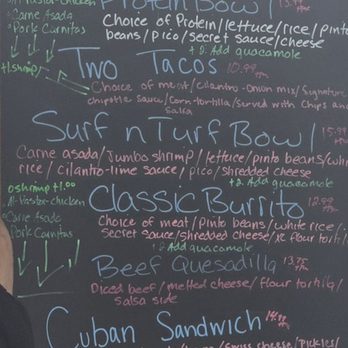 Al Pastor-chicken
Protein Bowl
Carne Asada
Choice of Protein/lettuce/rice/pinto
Pork Carnitas
beans/pico/secret sauce/cheese
+1.shrimp
Add guacamole
Two Tacos 10.99
Choice of meat/cilantro-onion mix/signature
chipotle sauce/corn-tortilla/served with chips and
salsa
Surf n Turf Bowl 15.99
Carne asada/Jumbo shrimp/lettuce/pinto beans/white
rice/cilantro-lime sauce/pico/shredded cheese
Add guacamole
shrimp +1.00
Classic Burrito 12.99
Al-Pastor-chicken
Choice of meat/pinto beans/white rice/
Carne Asada
secret sauce/shredded cheese/xl flour tortilla
Pork Carnitas
Add guacamole
Beef Quesadilla 13.75
Diced beef/melted cheese/flour tortilla/
salsa side
Cuban Sandwich 14.99
/swiss cheese/pickles/